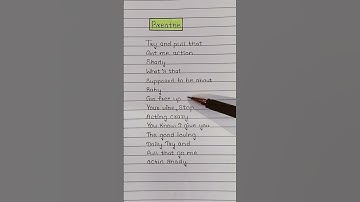 Breathe
Try and pull that
Out me action
Shady
What's that
Supposed to be about
Baby
Go free up
Your vibe Stop
Acting crazy
You Know I give you
The good loving
Daily Try and
Pull that go me
actin Shady